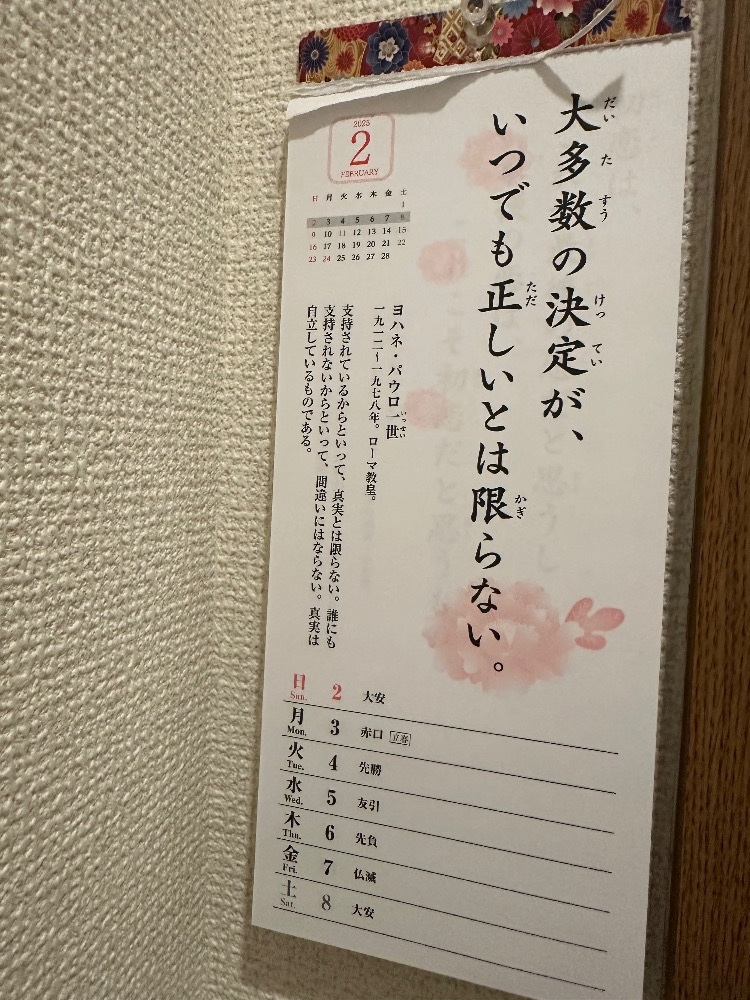 大多数の決定が、
だい た すう けっ てい
いつでも正しいとは限らない。
ただ かぎ
2025
2
FEBRUARY
日 月 火 水 木 金 土
1
2 3 4 5 6 7 8
9 10 11 12 13 14 15
16 17 18 19 20 21 22
23 24 25 26 27 28
ヨハネ・パウロ一世
いっせい
一九一二〜一九七八年。ローマ教皇。
支持されているからといって、真実とは限らない。誰にも
支持されないからといって、間違いにはならない。真実は
自立しているものである。
日 Sun. 2 大安
月 Mon. 3 赤口 立春
火 Tue. 4 先勝
水 Wed. 5 友引
木 Thu. 6 先負
金 Fri. 7 仏滅
土 Sat. 8 大安